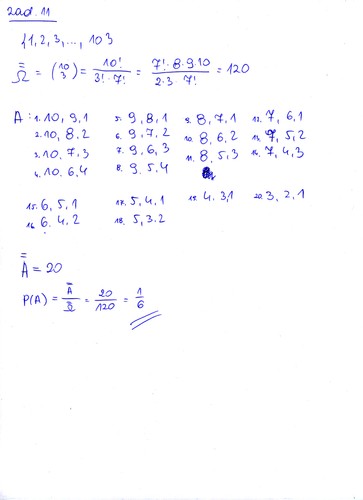 zad. 11
{1, 2, 3, ..., 10}
Ω̿ = (10 3) = 10! / 3! · 7! = 7! · 8 · 9 · 10 / 2 · 3 · 7! = 120
A : 1. 10, 9, 1 5. 9, 8, 1 9. 8, 7, 1 12. 7, 6, 1
2. 10, 8, 2 6. 9, 7, 2 10. 8, 6, 2 13. 7, 5, 2
3. 10, 7, 3 7. 9, 6, 3 11. 8, 5, 3 14. 7, 4, 3
4. 10, 6, 4 8. 9, 5, 4
15. 6, 5, 1 17. 5, 4, 1 19. 4, 3, 1 20. 3, 2, 1
16. 6, 4, 2 18. 5, 3, 2
A̿ = 20
P(A) = A̿ / Ω̿ = 20 / 120 = 1 / 6